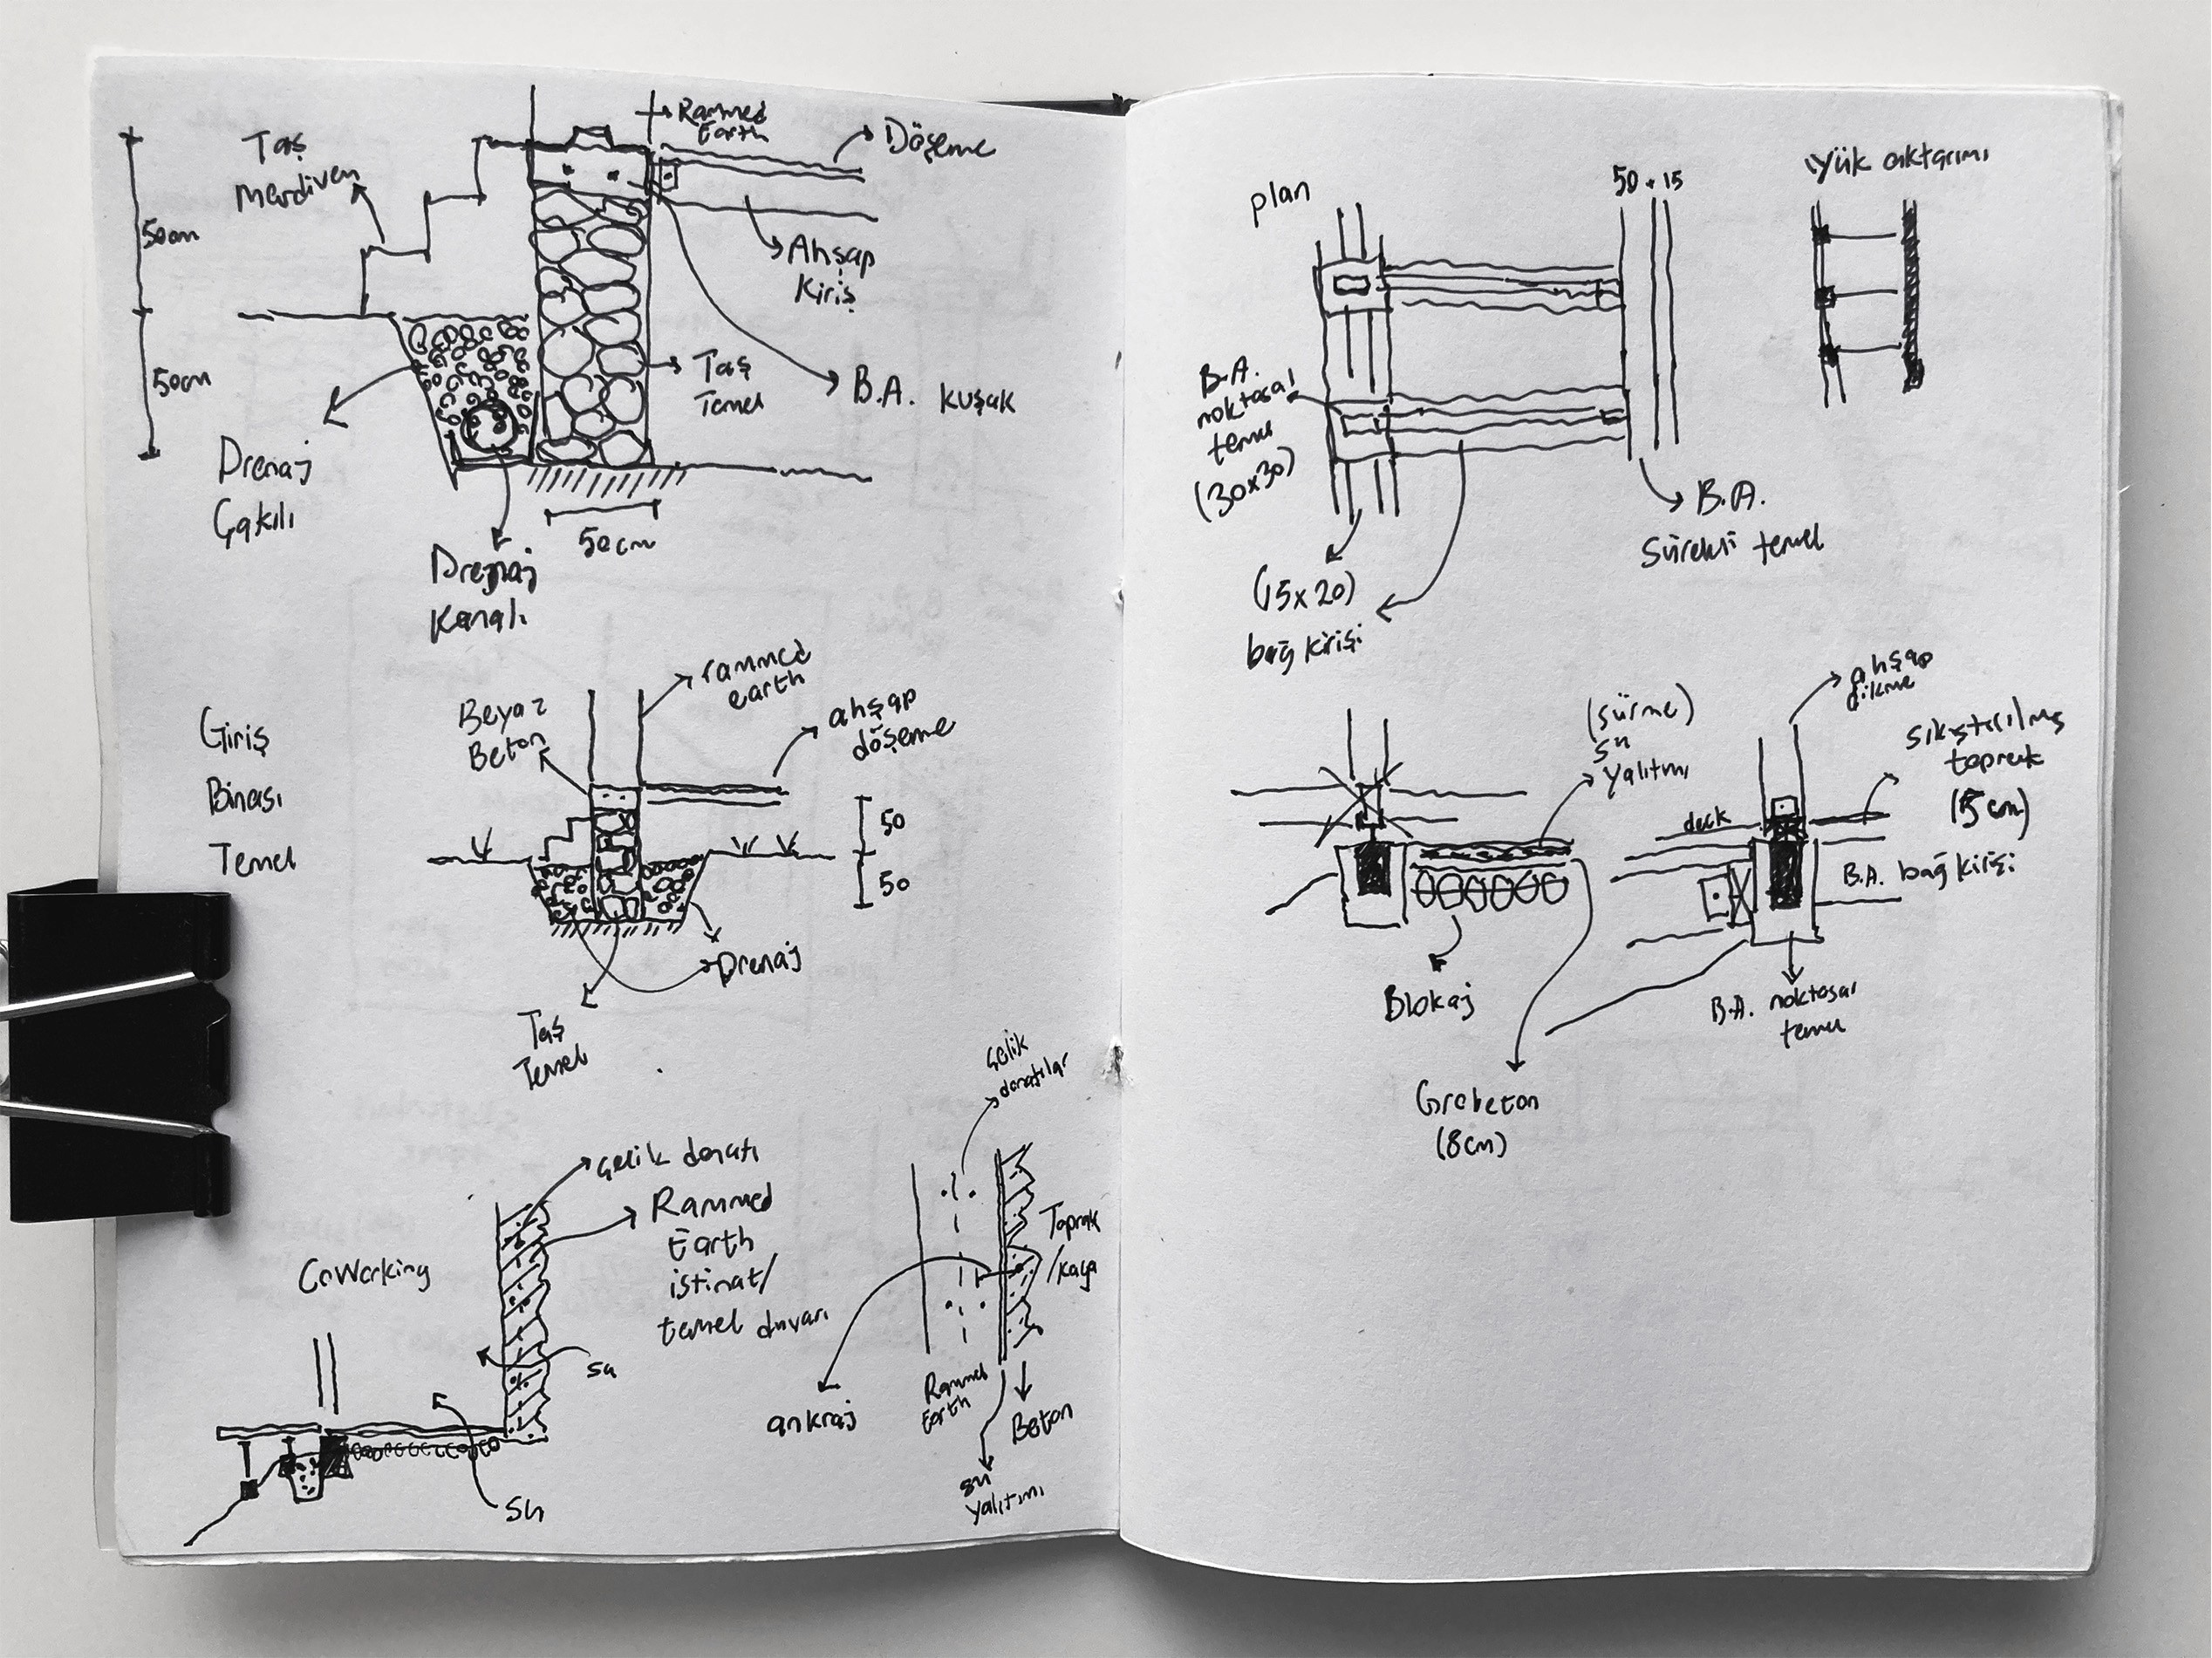 Taş
Merdiven
Rammed
Earth
Döşeme
50cm
Ahşap
Kiriş
50cm
Taş
Temel
B.A. kuşak
Drenaj
Çakılı
50cm
Drenaj
Kanalı
Giriş
Binası
Temel
Beyaz
Beton
rammed
earth
ahşap
döşeme
50
50
Drenaj
Taş
Temel
CoWorking
çelik donatı
Rammed
Earth
istinat/
temel duvarı
su
su
çelik
donatılar
Toprak
/kaya
ankraj
Rammed
Earth
Beton
su
yalıtımı
plan
50 + 15
yük aktarımı
B.A.
noktasal
temel
(30x30)
B.A.
sürekli temel
(15x20)
bağ kirişi
(sürme)
su
yalıtımı
Blokaj
Grobeton
(8cm)
ahşap
dikme
sıkıştırılmış
toprak
(15cm)
deck
B.A. bağ kirişi
B.A. noktasal
temel